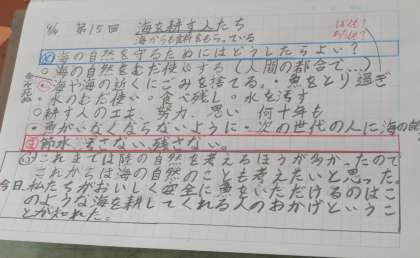 第15回 海を耕す人たち
海の自然を守るためにはどうしたらよい?
○海の自然をむだ使いする(人間の都合で…)
海や海の近くにごみを捨てる。・魚をとり過ぎ
・水のむだ使い・食べ残し・水を汚す
○耕す人の工夫、努力、思い 何十年も
・魚がいなくならないように・次の世代の人に海の
節水、汚さない。残さない。
これまでは陸の自然を考えるほうが多かったので
これからは海の自然のことも考えたいと思った。
今日、私たちがおいしく安全に魚をいただけるのはこ
のような海を耕してくれる人のおかげというこ
とが知れた。